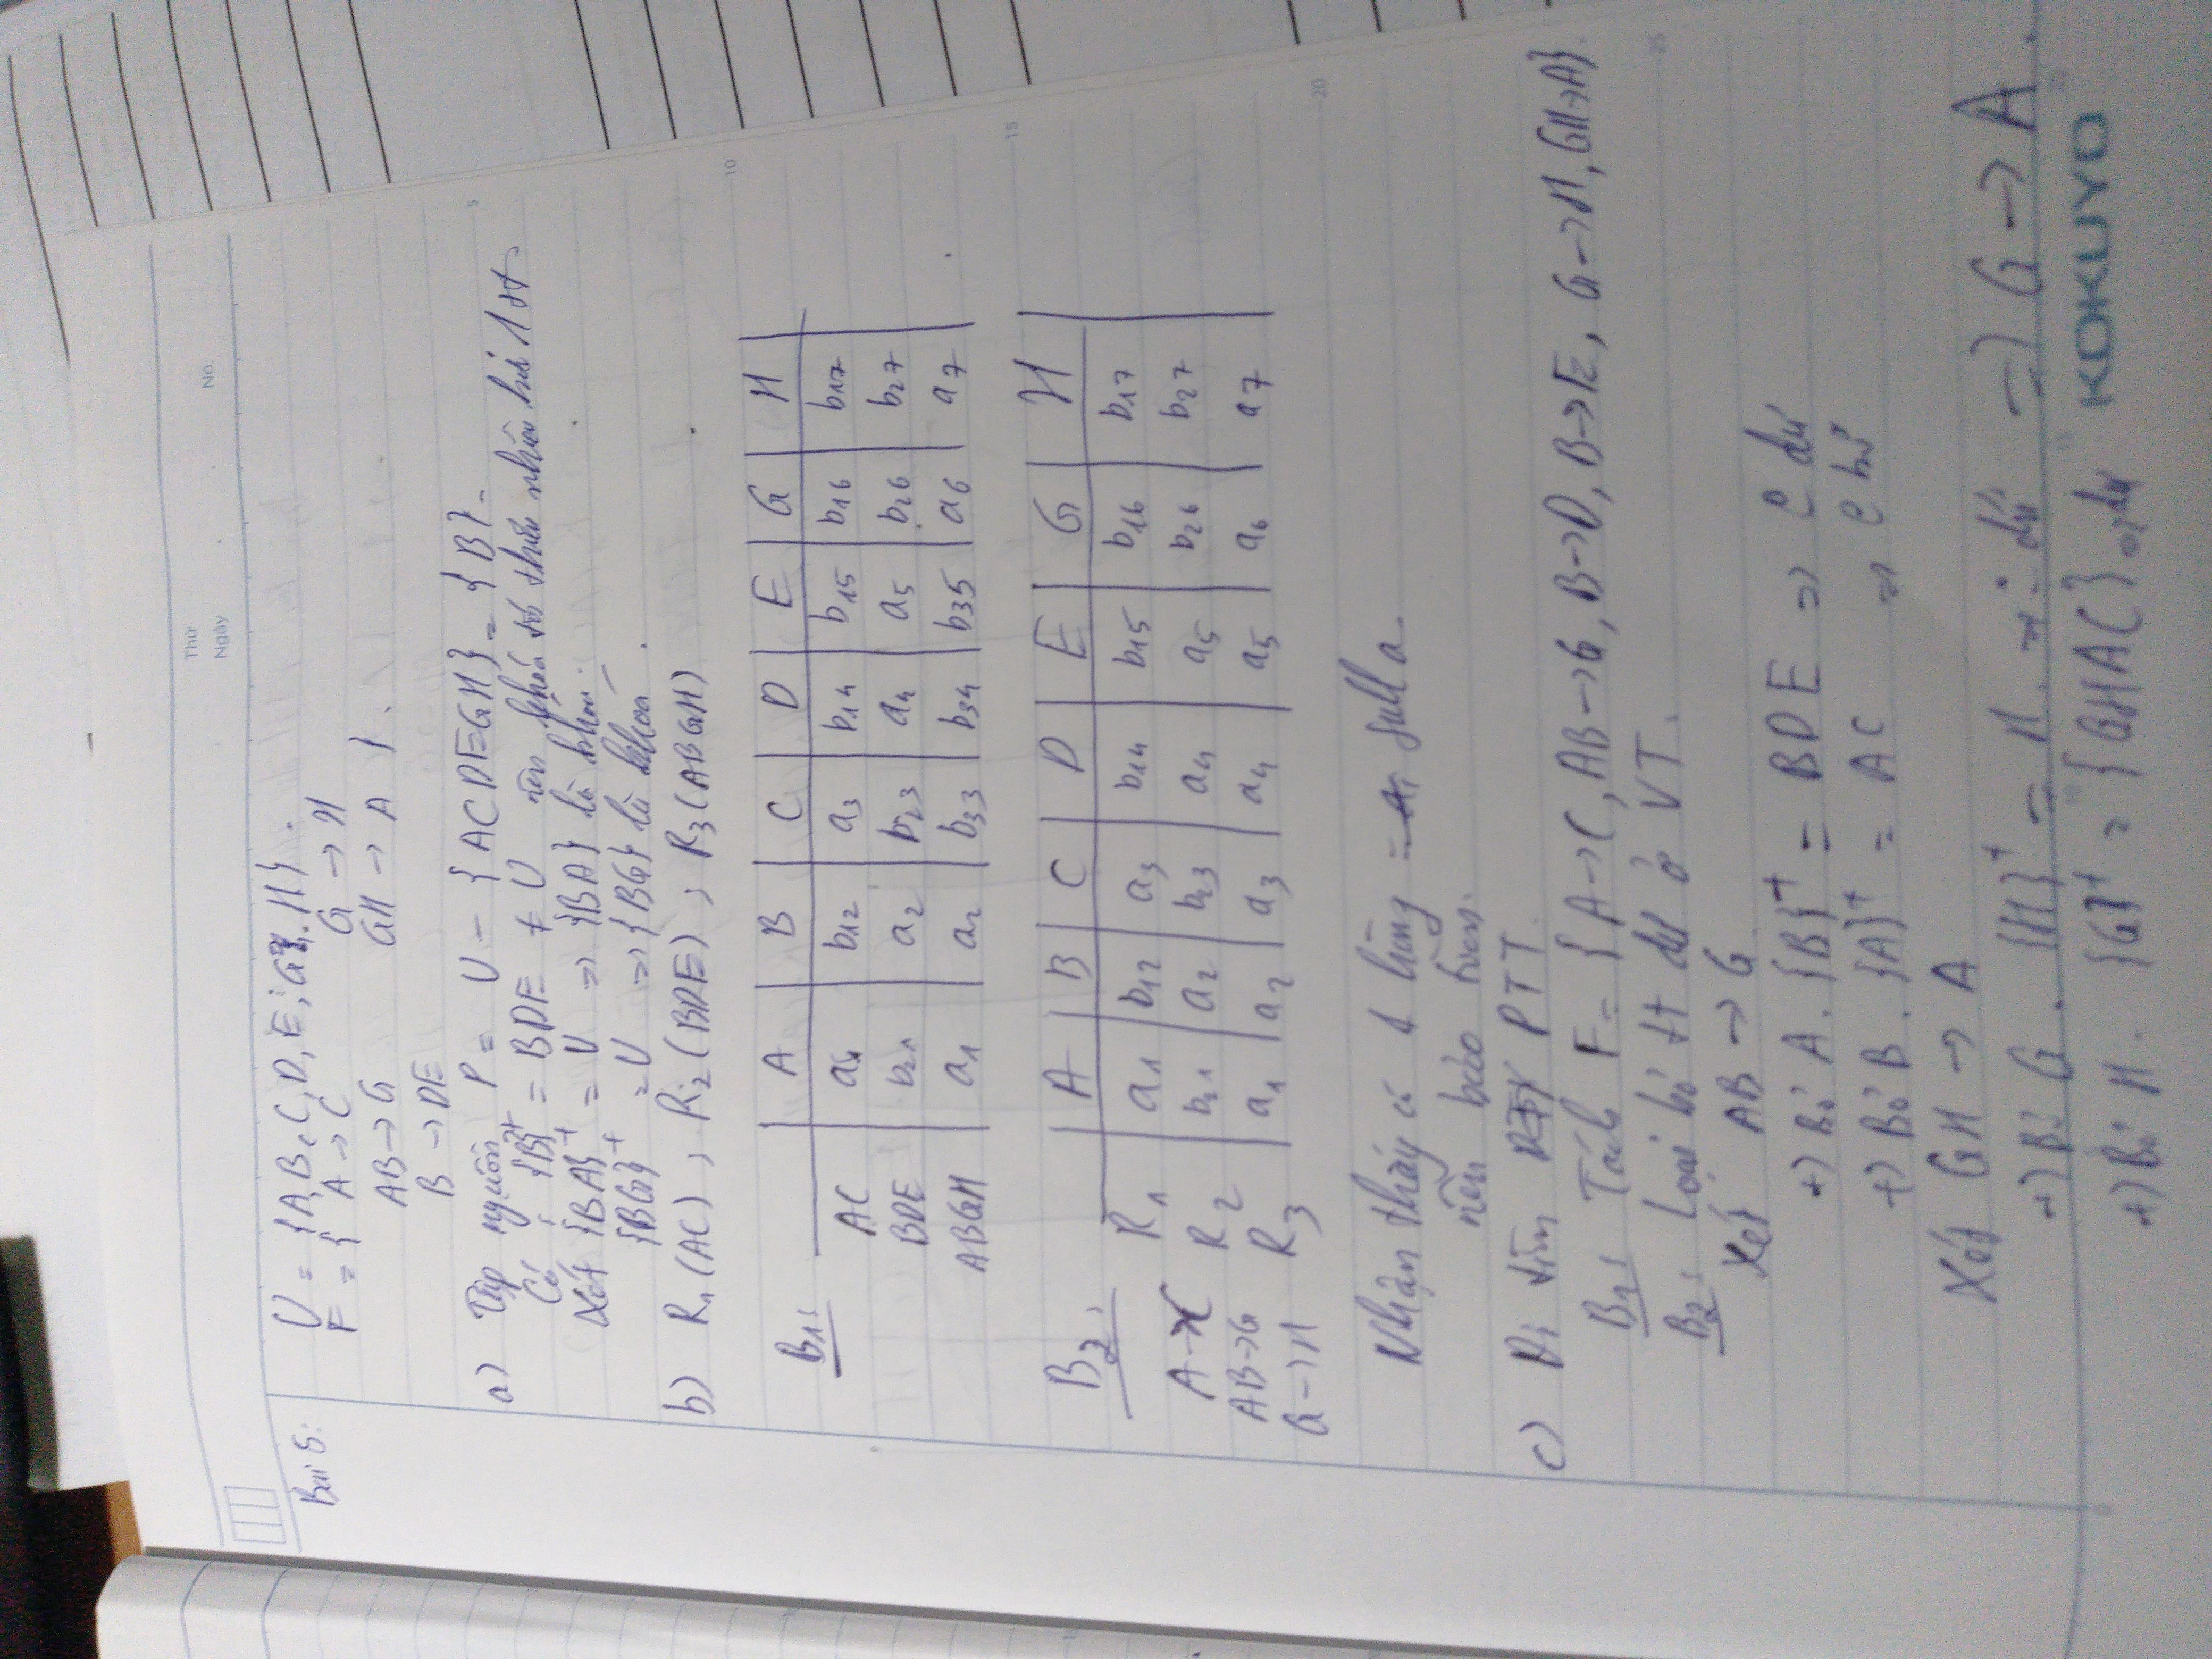 Thứ
Ngày
No.
Bài 5: U = {A, B, C, D, E, G, H}.
F = { A → C G → H
AB → G GH → A }.
B → DE
a) Tập nguồn P = U - {ACDEGH} = {B}.
Có: {B}⁺ = BDE ≠ U nên khoá tối thiểu nhiều hơn 1 tt.
Xét {BA}⁺ = U => {BA} là khoá.
{BG}⁺ = U => {BG} là khoá.
b) R₁(AC) ; R₂(BDE) ; R₃(ABGH)
5
10
B₁: A B C D E G H
AC a₁ b₁₂ a₃ b₁₄ b₁₅ b₁₆ b₁₇
BDE b₂₁ a₂ b₂₃ a₄ a₅ b₂₆ b₂₇
ABGH a₁ a₂ b₃₃ b₃₄ b₃₅ a₆ a₇
15
B₂: A B C D E G H
R₁ a₁ b₁₂ a₃ b₁₄ b₁₅ b₁₆ b₁₇
A → C R₂ b₂₁ a₂ b₂₃ a₄ a₅ b₂₆ b₂₇
AB → G R₃ a₁ a₂ a₃ a₄ a₅ a₆ a₇
G → H
20
Nhận thấy có 1 hàng = full a.
nên bảo toàn.
c) Đi tìm PTT
B₁: Tách F = {A → C, AB → G, B → D, B → E, G → H, GH → A}
B₂: Loại bỏ tt dư ở VT.
25
Xét AB → G.
+) Bỏ A. {B}⁺ = BDE => dư
+) Bỏ B. {A}⁺ = AC =>
Xét GH → A
+) Bỏ G. {H}⁺ = H. dư => G → A.
+) Bỏ H. {G}⁺ = {GHAC} => dư
KOKUYO